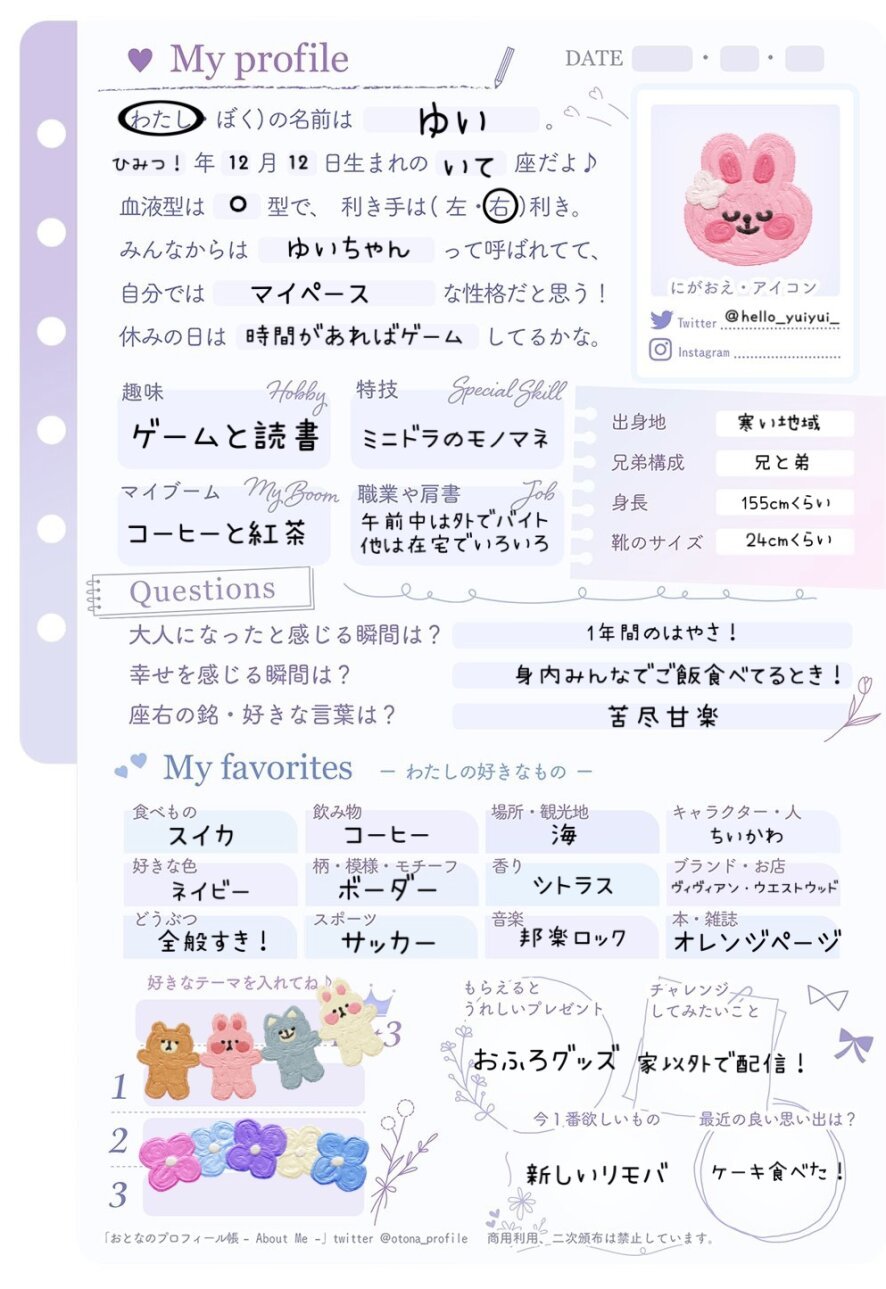 My profile
DATE ・ ・
わたし・ぼく)の名前は ゆい 。
ひみつ！ 年 12 月 12 日生まれの いて 座だよ♪
血液型は O 型で、 利き手は( 左・右)利き。
みんなからは ゆいちゃん って呼ばれてて、
自分では マイペース な性格だと思う！
休みの日は 時間があればゲーム してるかな。
にがおえ・アイコン
Twitter @hello_yuiyui_
Instagram
趣味 Hobby
ゲームと読書
特技 Special Skill
ミニドラのモノマネ
マイブーム My Boom
コーヒーと紅茶
職業や肩書 Job
午前中は外でバイト
他は在宅でいろいろ
出身地 寒い地域
兄弟構成 兄と弟
身長 155cmくらい
靴のサイズ 24cmくらい
Questions
大人になったと感じる瞬間は？ 1年間のはやさ！
幸せを感じる瞬間は？ 身内みんなでご飯食べてるとき！
座右の銘・好きな言葉は？ 苦尽甘楽
My favorites ー わたしの好きなもの ー
食べもの 飲み物 場所・観光地 キャラクター・人
スイカ コーヒー 海 ちいかわ
好きな色 柄・模様・モチーフ 香り ブランド・お店
ネイビー ボーダー シトラス ヴィヴィアン・ウエストウッド
どうぶつ スポーツ 音楽 本・雑誌
全般すき！ サッカー 邦楽ロック オレンジページ
好きなテーマを入れてね♪
3
1
2
3
もらえると
うれしいプレゼント
おふろグッズ
チャレンジ
してみたいこと
家以外で配信！
今1番欲しいもの
新しいリモバ
最近の良い思い出は？
ケーキ食べた！
「おとなのプロフィール帳 - About Me -」twitter @otona_profile 商用利用、二次頒布は禁止しています。